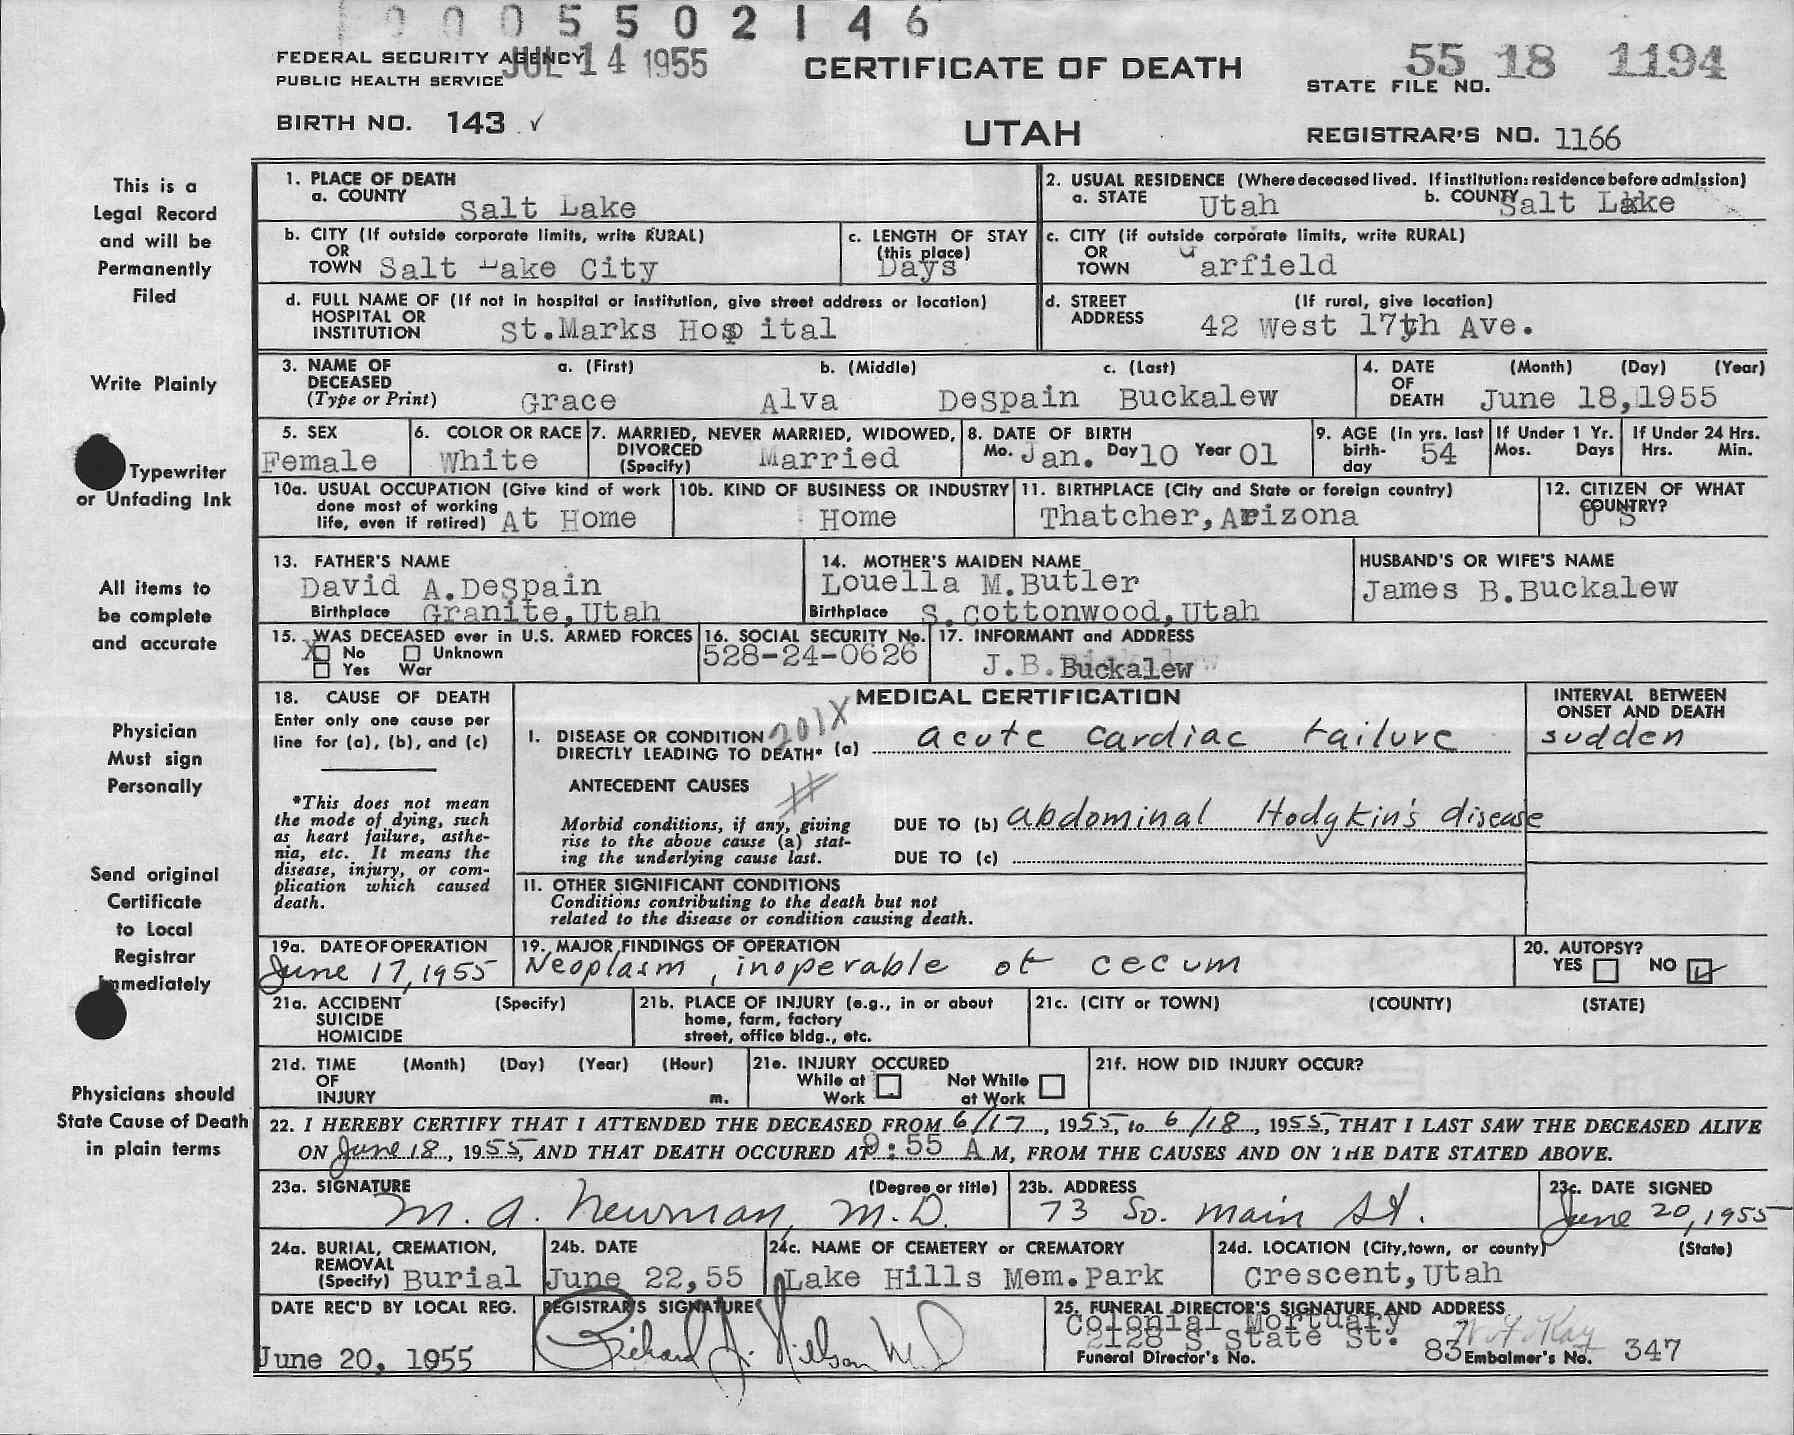 0005502146
FEDERAL SECURITY AGENCY JUL 14 1955
PUBLIC HEALTH SERVICE
CERTIFICATE OF DEATH
55 18 1194
STATE FILE NO.
BIRTH NO. 143 ✓
UTAH
REGISTRAR'S NO. 1166
This is a
Legal Record
and will be
Permanently
Filed
Write Plainly
Typewriter
or Unfading Ink
All items to
be complete
and accurate
Physician
Must sign
Personally
Send original
Certificate
to Local
Registrar
Immediately
Physicians should
State Cause of Death
in plain terms
1. PLACE OF DEATH
a. COUNTY Salt Lake
2. USUAL RESIDENCE (Where deceased lived. If institution: residence before admission)
a. STATE Utah b. COUNTY Salt Lake
b. CITY (If outside corporate limits, write RURAL)
OR
TOWN Salt Lake City
c. LENGTH OF STAY
(this place)
Days
c. CITY (if outside corporate limits, write RURAL)
OR
TOWN Garfield
d. FULL NAME OF (If not in hospital or institution, give street address or location)
HOSPITAL OR
INSTITUTION St.Marks Hospital
d. STREET (If rural, give location)
ADDRESS 42 West 17th Ave.
3. NAME OF a. (First) b. (Middle) c. (Last)
DECEASED
(Type or Print) Grace Alva DeSpain Buckalew
4. DATE (Month) (Day) (Year)
OF
DEATH June 18,1955
5. SEX
Female
6. COLOR OR RACE
White
7. MARRIED, NEVER MARRIED, WIDOWED,
DIVORCED
(Specify) Married
8. DATE OF BIRTH
Mo. Jan. Day 10 Year 01
9. AGE (in yrs. last
birth-
day 54
If Under 1 Yr.
Mos. Days
If Under 24 Hrs.
Hrs. Min.
10a. USUAL OCCUPATION (Give kind of work
done most of working
life, even if retired) At Home
10b. KIND OF BUSINESS OR INDUSTRY
Home
11. BIRTHPLACE (City and State or foreign country)
Thatcher,Arizona
12. CITIZEN OF WHAT
COUNTRY?
U S
13. FATHER'S NAME
David A.DeSpain
Birthplace Granite,Utah
14. MOTHER'S MAIDEN NAME
Louella M.Butler
Birthplace S.Cottonwood,Utah
HUSBAND'S OR WIFE'S NAME
James B.Buckalew
15. WAS DECEASED ever in U.S. ARMED FORCES
X No Unknown
Yes War
16. SOCIAL SECURITY No.
528-24-0626
17. INFORMANT and ADDRESS
J.B.Buckalew
18. CAUSE OF DEATH
Enter only one cause per
line for (a), (b), and (c)
*This does not mean
the mode of dying, such
as heart failure, asthe-
nia, etc. It means the
disease, injury, or com-
plication which caused
death.
MEDICAL CERTIFICATION
201X
I. DISEASE OR CONDITION
DIRECTLY LEADING TO DEATH* (a) acute cardiac failure
INTERVAL BETWEEN
ONSET AND DEATH
sudden
ANTECEDENT CAUSES
Morbid conditions, if any, giving
rise to the above cause (a) stat-
ing the underlying cause last.
DUE TO (b) abdominal Hodgkin's disease
DUE TO (c)
II. OTHER SIGNIFICANT CONDITIONS
Conditions contributing to the death but not
related to the disease or condition causing death.
19a. DATE OF OPERATION
June 17, 1955
19. MAJOR FINDINGS OF OPERATION
Neoplasm, inoperable of cecum
20. AUTOPSY?
YES NO ✓
21a. ACCIDENT (Specify)
SUICIDE
HOMICIDE
21b. PLACE OF INJURY (e.g., in or about
home, farm, factory
street, office bldg., etc.
21c. (CITY or TOWN) (COUNTY) (STATE)
21d. TIME (Month) (Day) (Year) (Hour)
OF
INJURY m.
21e. INJURY OCCURED
While at Not While
Work at Work
21f. HOW DID INJURY OCCUR?
22. I HEREBY CERTIFY THAT I ATTENDED THE DECEASED FROM 6/17, 1955, to 6/18, 1955, THAT I LAST SAW THE DECEASED ALIVE
ON June 18, 1955, AND THAT DEATH OCCURED AT 9:55 A M, FROM THE CAUSES AND ON THE DATE STATED ABOVE.
23a. SIGNATURE (Degree or title)
M. A. Newman, M.D.
23b. ADDRESS
73 So. Main St.
23c. DATE SIGNED
June 20, 1955
24a. BURIAL, CREMATION,
REMOVAL
(Specify) Burial
24b. DATE
June 22,55
24c. NAME OF CEMETERY or CREMATORY
Lake Hills Mem.Park
24d. LOCATION (City,town, or county) (State)
Crescent,Utah
DATE REC'D BY LOCAL REG.
June 20, 1955
REGISTRAR'S SIGNATURE
Richard A. Nilson MD
25. FUNERAL DIRECTOR'S SIGNATURE AND ADDRESS
Colonial Mortuary
2128 S State St.
Funeral Director's No. 83 Embalmer's No. 347